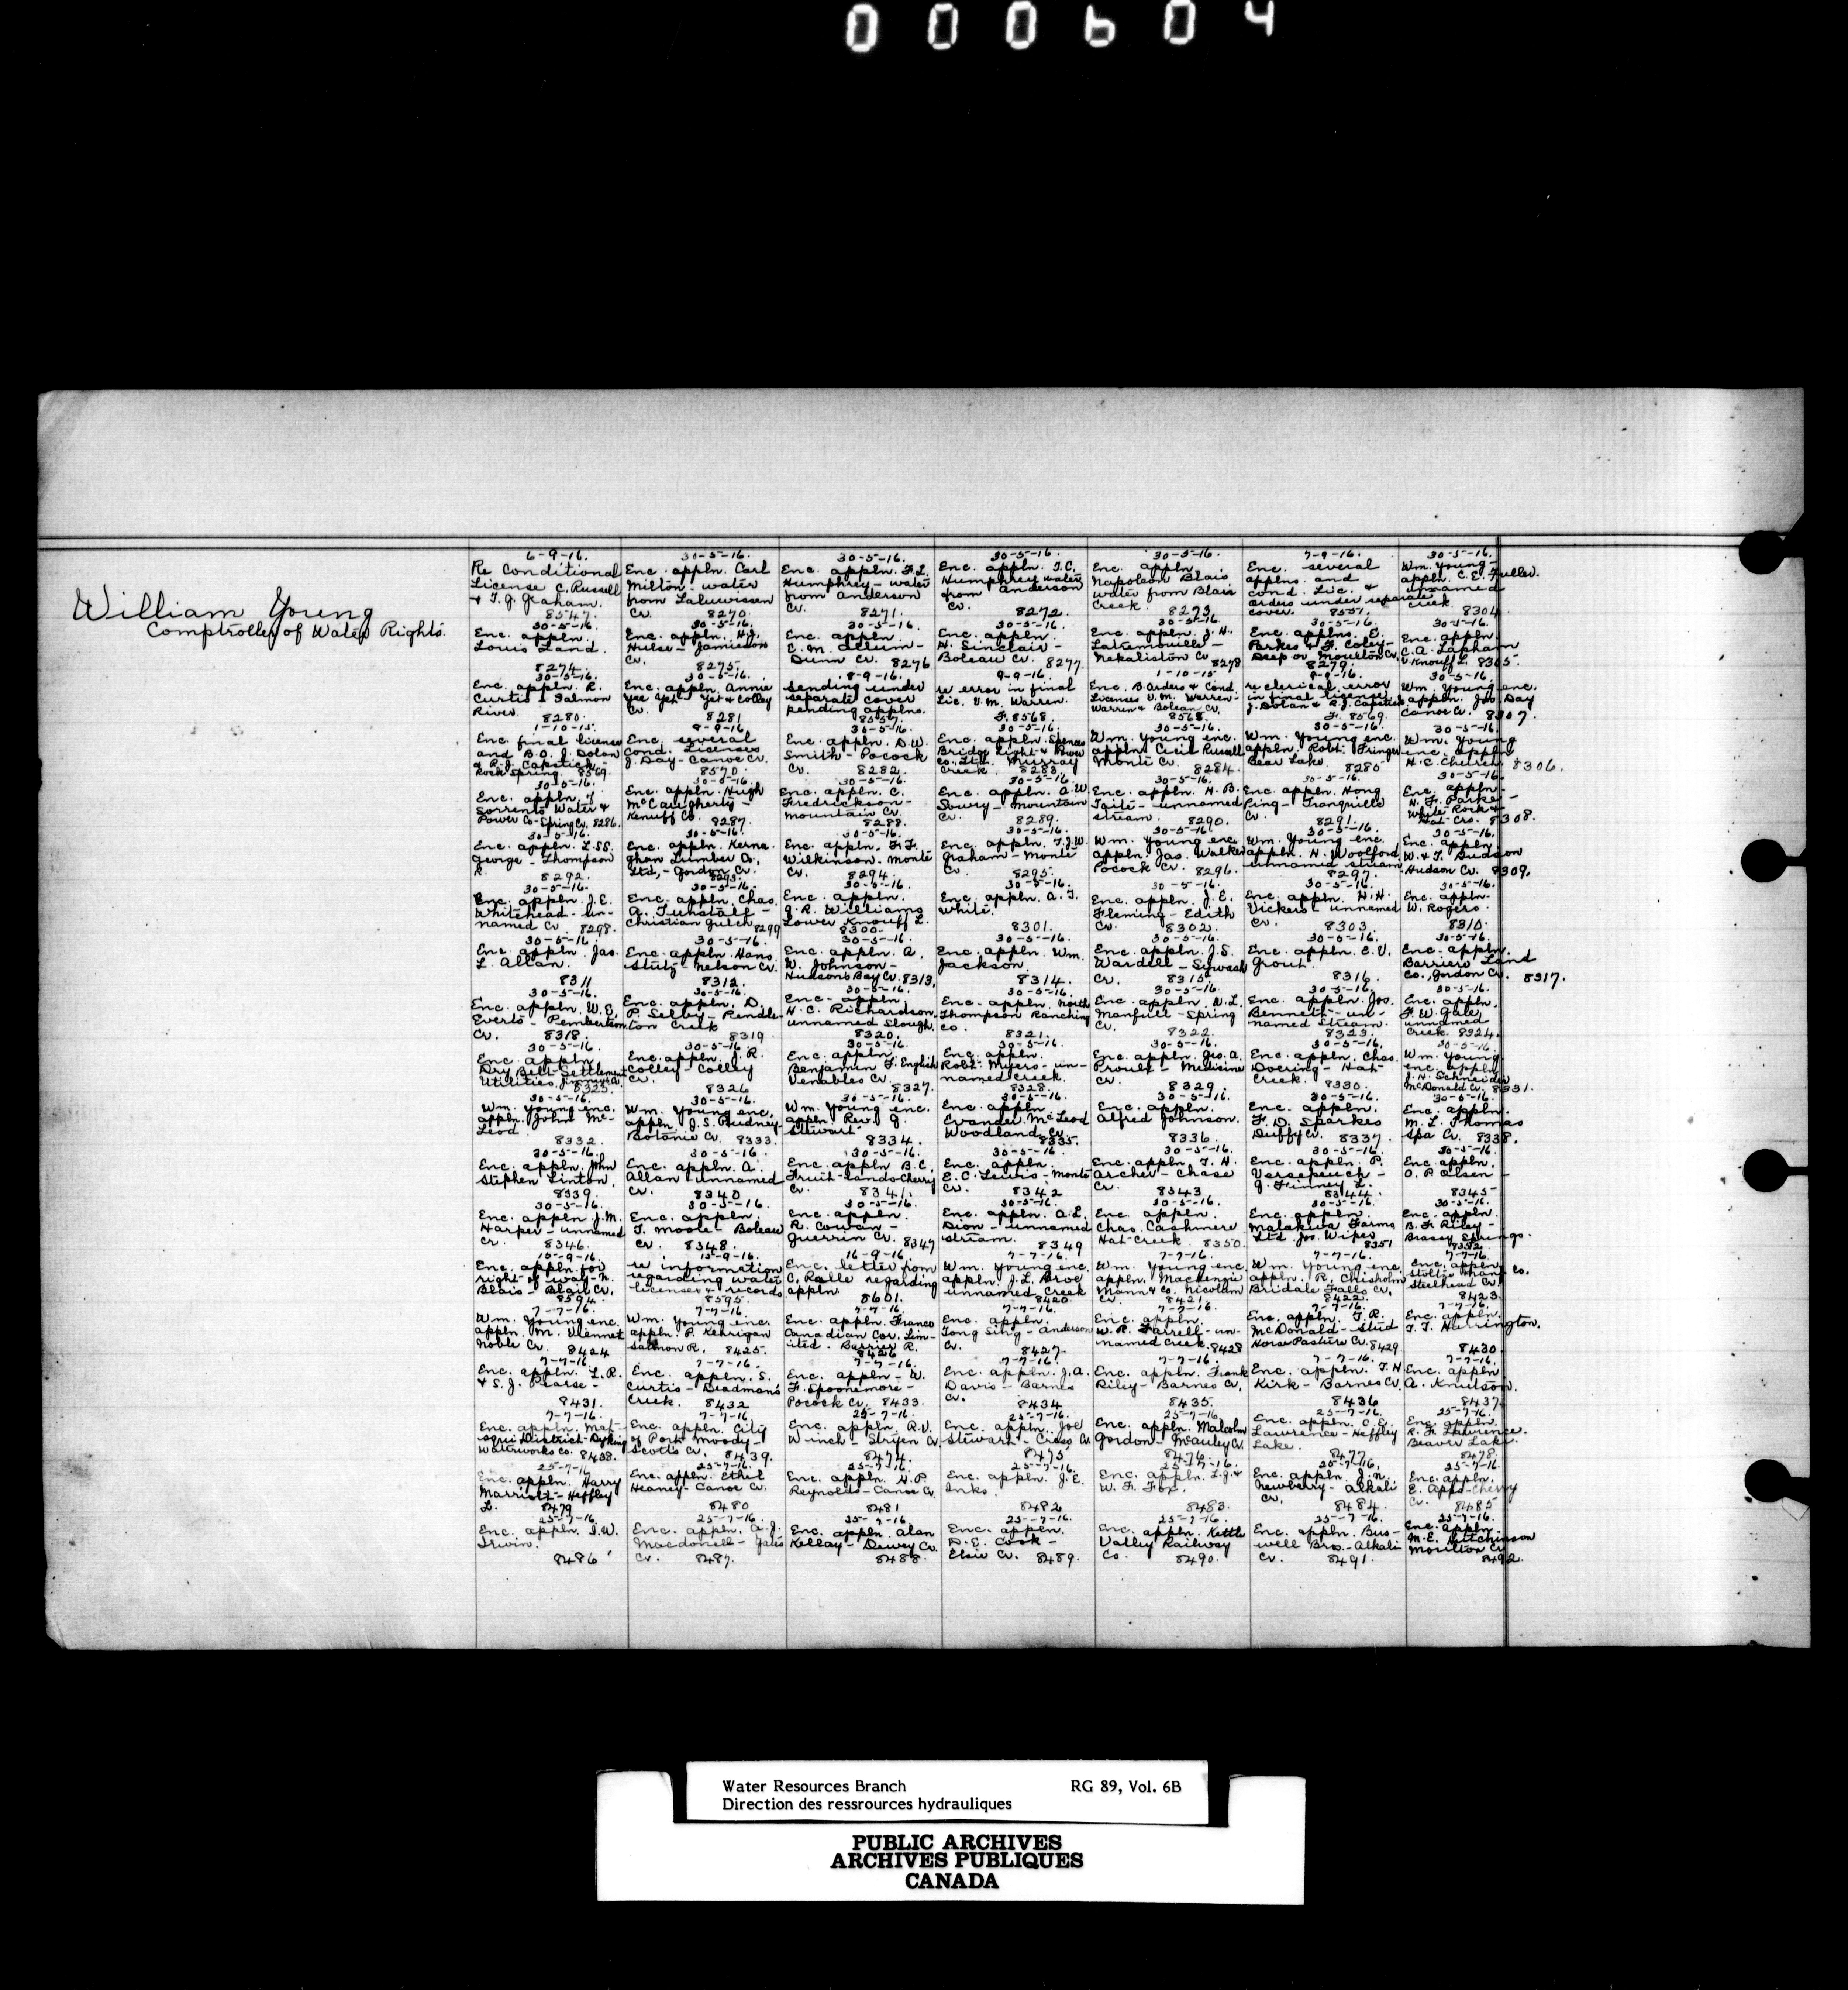 000604
William Young
Comptroller of Water Rights.
6-9-16.
Re Conditional
License C. Russell
& T. J. Graham.
8547.
30-5-16.
Enc. appln. Carl
Milton - water
from
Cr. 8270.
30-5-16.
Enc. appln. F. L.
Humphrey - water
from Anderson
Cr. 8271.
30-5-16.
Enc. appln. T.C.
Humphrey water
from Anderson
Cr. 8272.
30-5-16.
Enc. appln
Napoleon Blais
water from Blais
Creek. 8273.
7-9-16.
Enc. several
applns. and
cond. Lic. &
orders under separate
cover. 8551.
30-5-16.
Wm. Young -
appln. C. E. Fuller.
unnamed
creek. 8304.
30-5-16.
Enc. appln.
Louis Land.
8274.
30-5-16.
Enc. appln. H.J.
Hulse - Jamieson
Cr. 8275.
30-5-16.
Enc. appln.
C. M. Allum -
Dunn Cr. 8276
30-5-16.
Enc. appln.
H. Sinclair -
Boleau Cr. 8277.
30-5-16.
Enc. appln. J. H.
Latremouille -
Nekaliston Cr. 8278
30-5-16.
Enc. applns. E.
Parkes & F. Coley -
Deep or Moulton Cr.
8279.
30-5-16.
Enc. appln.
C. A. Lapham
Knouff L. 8305.
30-5-16.
Enc. appln. R.
Curtis - Salmon
River. 8280.
30-5-16.
Enc. appln. Annie
Cr. 8281
8-9-16.
Sending under
separate cover
pending applns.
8557.
9-9-16.
re error in final
Lic. V. M. Warren.
F. 8568.
1-10-15
Enc. B. Orders & Cond.
Licenses V. M. Warren -
Warren & Bolean Cr.
8568.
9-9-16.
re clerical error
in final license
J. Dolan & R. J. Capstick
F. 8569.
30-5-16.
Wm. Young enc.
appln. Jos. Day
Canoe Cr. 8307.
1-10-15.
Enc. final license
and B.O. J. Dolan
& R. J. Capstick -
Rock Spring. 8569.
9-9-16
Enc. several
Cond. Licenses
J. Day - Canoe Cr.
8570.
30-5-16.
Enc. appln. D. W.
Smith - Pocock
Cr. 8282.
30-5-16.
Enc. appln. Spences
Bridge Light & Power
Co. Ltd. Murray
Creek. 8283.
30-5-16.
Wm. Young enc.
appln. Cecil Russell
Monte Cr. 8284.
30-5-16.
Wm. Young enc.
appln. Robt. Fringer
Bear Lake. 8285
30-5-16.
Wm. Young
enc. appln
H. C. Church. 8306.
30-5-16.
Enc. appln. of
Sorrento Water &
Power Co - Spring Cr. 8286.
30-5-16.
Enc. appln. Hugh
McCaugherty -
Kenuff Cr. 8287.
30-5-16.
Enc. appln. C.
Fredrickson -
Mountain Cr.
8288.
30-5-16.
Enc. appln. A. W.
Sowry - Mountain
Cr. 8289.
30-5-16.
Enc. appln. H. B.
Taile - unnamed
stream. 8290.
30-5-16.
Enc. appln. Hong
Ping - Tranquille
Cr. 8291.
30-5-16.
Enc. appln -
H. F. Parke -
White Rock &
Hat Crs. 8308.
30-5-16.
Enc. appln.
George - Thompson
R. 8292.
30-5-16.
Enc. appln. Kerna-
ghan Lumber Co.
Ltd. - Gordon Cr.
8293.
30-5-16.
Enc. appln. F. F.
Wilkinson - Monte
Cr. 8294.
30-5-16.
Enc. appln. T. J. W.
Graham - Monte
Cr. 8295.
30-5-16.
Wm. Young enc.
appln. Jas. Walker
Pocock Cr. 8296.
30-5-16.
Wm. Young enc.
appln. H. Woolford
unnamed stream
8297.
30-5-16.
Enc. appln
W. & T. Hudson
Hudson Cr. 8309.
30-5-16.
Enc. appln. J. E.
Whitehead - un-
named Cr. 8298.
30-5-16.
Enc. appln. Chas.
A. Tunstall -
Christian Gulch 8299
30-5-16.
Enc. appln.
J. R. Williams
Lower Knouff L.
8300.
30-5-16.
Enc. appln. A. T.
White.
8301.
30-5-16.
Enc. appln. J. E.
Fleming - Edith
Cr. 8302.
30-5-16.
Enc. appln. H. H.
Vickers - unnamed
Cr. 8303.
30-5-16.
Enc. appln -
W. Rogers.
8310.
30-5-16.
Enc. appln. Jas.
L. Allan.
8311
30-5-16.
Enc. appln. Hans
Stutz - Nelson Cr.
8312.
30-5-16.
Enc. appln. A.
W. Johnson -
Hudsons Bay Cr. 8313.
30-5-16.
Enc. appln. Wm.
Jackson.
8314.
30-5-16.
Enc. appln. J. S.
Wardell - Siwash
Cr. 8315.
30-5-16.
Enc. appln. E. V.
Grout.
8316.
30-5-16.
Enc. appln.
Barriere Land
Co., Gordon Cr. 8317.
30-5-16.
Enc. appln. W. E.
Everts - Pemberton
Cr. 8318.
30-5-16.
Enc. appln. D.
P. Selby - Pendle-
ton Creek
8319
30-5-16.
Enc. appln.
H. C. Richardson
unnamed Slough.
8320.
30-5-16.
Enc. appln. North
Thompson Ranching
Co. 8321.
30-5-16.
Enc. appln. W. L.
Manfull - Spring
Cr. 8322.
30-5-16.
Enc. appln. Jos.
Bennett - un-
named Stream.
8323.
30-5-16.
Enc. appln.
F. W. Gale,
unnamed
Creek. 8324.
30-5-16.
Enc. appln.
Dry Belt Settlement
Utilities,
8325.
30-5-16
Enc. appln. J. R.
Colley - Colley
Cr. 8326
30-5-16.
Enc. appln.
Benjamin F. English
Venables Cr. 8327.
30-5-16.
Enc. appln.
Robt. Myers - un-
named Creek.
8328.
30-5-16.
Enc. appln. Geo. A.
Proulx - Medicine
Cr. 8329.
30-5-16.
Enc. appln. Chas.
Doering - Hat
Creek. 8330.
30-5-16
Wm. Young.
enc. appln
J. H. Schneider
McDonald Cr. 8331.
30-5-16.
Wm. Young enc.
appln. John Mc-
Leod.
8332.
30-5-16.
Wm. Young enc.
appln. J. S. Pudney
Botanie Cr. 8333.
30-5-16.
Wm. Young enc.
appln. Rev. G.
Stewart
8334.
30-5-16.
Enc. appln.
Evander McLeod
Woodland Cr.
8335.
30-5-16.
Enc. appln.
Alfred Johnson.
8336.
30-5-16.
Enc. appln.
F. D. Sparkes
Duffy Cr. 8337.
30-5-16.
Enc. appln.
M. L. Thomas
Spa Cr. 8338.
30-5-16.
Enc. appln. John
Stephen Linton.
8339.
30-5-16.
Enc. appln. A.
Allan - unnamed
Cr. 8340
30-5-16.
Enc. appln B.C.
Fruitlands - Cherry
Cr. 8341.
30-5-16.
Enc. appln.
E. C. Lewis - Monte
Cr. 8342
30-5-16.
Enc. appln. T. H.
Archer - Chase
Cr. 8343
30-5-16.
Enc. appln. P.
J. Finney L.
8344.
30-5-16.
Enc. appln.
O. P. Olsen -
8345 -
30-5-16.
Enc. appln. J. M.
Harper - unnamed
Cr. 8346.
30-5-16.
Enc. appln.
T. Moore - Boleau
Cr. 8348.
30-5-16.
Enc. appln.
R. Cowan -
Guerrin Cr. 8347
30-5-16
Enc. appln. A. L.
Dion - unnamed
stream. 8349
30-5-16.
Enc. appln.
Chas. Cashmere
Hat Creek. 8350.
30-5-16.
Enc. appln.
Malakwa Farms
Ltd. Jos. Wiper
8351
30-5-16.
Enc. appln.
B. F. Riley -
Brassy Springs.
8352.
15-9-16.
Enc. appln for
right of way - N.
Blais - Blais Cr.
8594.
15-9-16.
re information
regarding water
licenses & records
8595.
16-9-16.
Enc. letter from
C. Ralle regarding
appln.
8601.
7-7-16.
Wm. Young enc.
appln. J. L. Broe
unnamed Creek
8420.
7-7-16.
Wm. Young enc.
appln. Mackenzie
Mann & Co. Nicolum
Cr. 8421.
7-7-16.
Wm. Young enc.
appln. R. Chisholm
Bridale Falls Cr.
8422.
7-7-16.
Enc. appln
Stoltze Manf. Co.
Steelhead Cr.
8423.
7-7-16.
Wm. Young enc.
appln. M. Viennet
Noble Cr. 8424
7-7-16.
Wm. Young enc.
appln. P. Kerrigan
Salmon R. 8425.
7-7-16.
Enc. appln. Franco
Canadian Cor. Lim-
ited. Barrier R.
8426
7-7-16.
Enc. appln.
Tong Sing - Anderson
Cr. 8427.
7-7-16.
Enc. appln.
W. R. Farrell - un-
named Creek. 8428
7-7-16.
Enc. appln. T. R.
McDonald - Stud
Horse Pasture Cr. 8429
7-7-16.
Enc. appln.
T. T. Harrington.
8430
7-7-16.
Enc. appln. L. R.
& S. J. Pearse -
8431.
7-7-16.
Enc. appln. S.
Curtis - Deadman's
Creek. 8432
7-7-16.
Enc. appln - W.
F. Spoonemore -
Pocock Cr. 8433.
7-7-16.
Enc. appln. J. A.
Davis - Barnes
Cr. 8434
7-7-16.
Enc. appln. Frank
Riley - Barnes Cr.
8435.
7-7-16.
Enc. appln. T. H.
Kirk - Barnes Cr.
8436
7-7-16.
Enc. appln
A. Knutson.
8437.
7-7-16.
Enc. appln. Mat-
squi District Dyking
Waterworks Co. 8438.
7-7-16
Enc. appln. City
of Port Moody -
Scotts Cr. 8439.
25-7-16.
Enc. appln. R. V.
Winch - Stryen Cr.
8474.
25-7-16.
Enc. appln. Joe
Stewart - Criss Cr.
8475
25-7-16
Enc. appln. Malcolm
Gordon - McAuley Cr.
8476
25-7-16.
Enc. appln. C. E.
Lawrence - Heffley
Lake. 8477
25-7-16.
Enc. appln.
R. F. Lawrence.
Beaver Lake.
8478.
25-7-16
Enc. appln. Harry
Marriott - Heffley
L. 8479
25-7-16.
Enc. appln. Ethel
Heaney - Canoe Cr.
8480
25-7-16.
Enc. appln. H. P.
Reynolds - Canoe Cr.
8481
25-7-16.
Enc. appln. J. E.
Inks.
8482
25-7-16.
Enc. appln. L. J. &
W. F. Fox.
8483.
25-7-16.
Enc. appln. J. N.
Newberry - Alkali
Cr. 8484.
25-7-16
Enc. appln.
E. Apps - Cherry
Cr. 8485
25-7-16.
Enc. appln. I. W.
Irwin.
8486
25-7-16.
Enc. appln. A. J.
Macdonell - Jules
Cr. 8487.
25-7-16.
Enc. appln. Alan
Kellay - Dewey Cr.
8488.
25-7-16.
Enc. appln.
D. E. Cook -
Elsie Cr. 8489.
25-7-16.
Enc. appln. Kettle
Valley Railway
Co. 8490.
25-7-16.
Enc. appln. Bus-
well Bros. - Alkali
Cr. 8491.
25-7-16.
Enc. appln.
M. E. Hutchinson
Moulton Cr.
8492.
Water Resources Branch RG 89, Vol. 6B
Direction des ressrources hydrauliques
PUBLIC ARCHIVES
ARCHIVES PUBLIQUES
CANADA